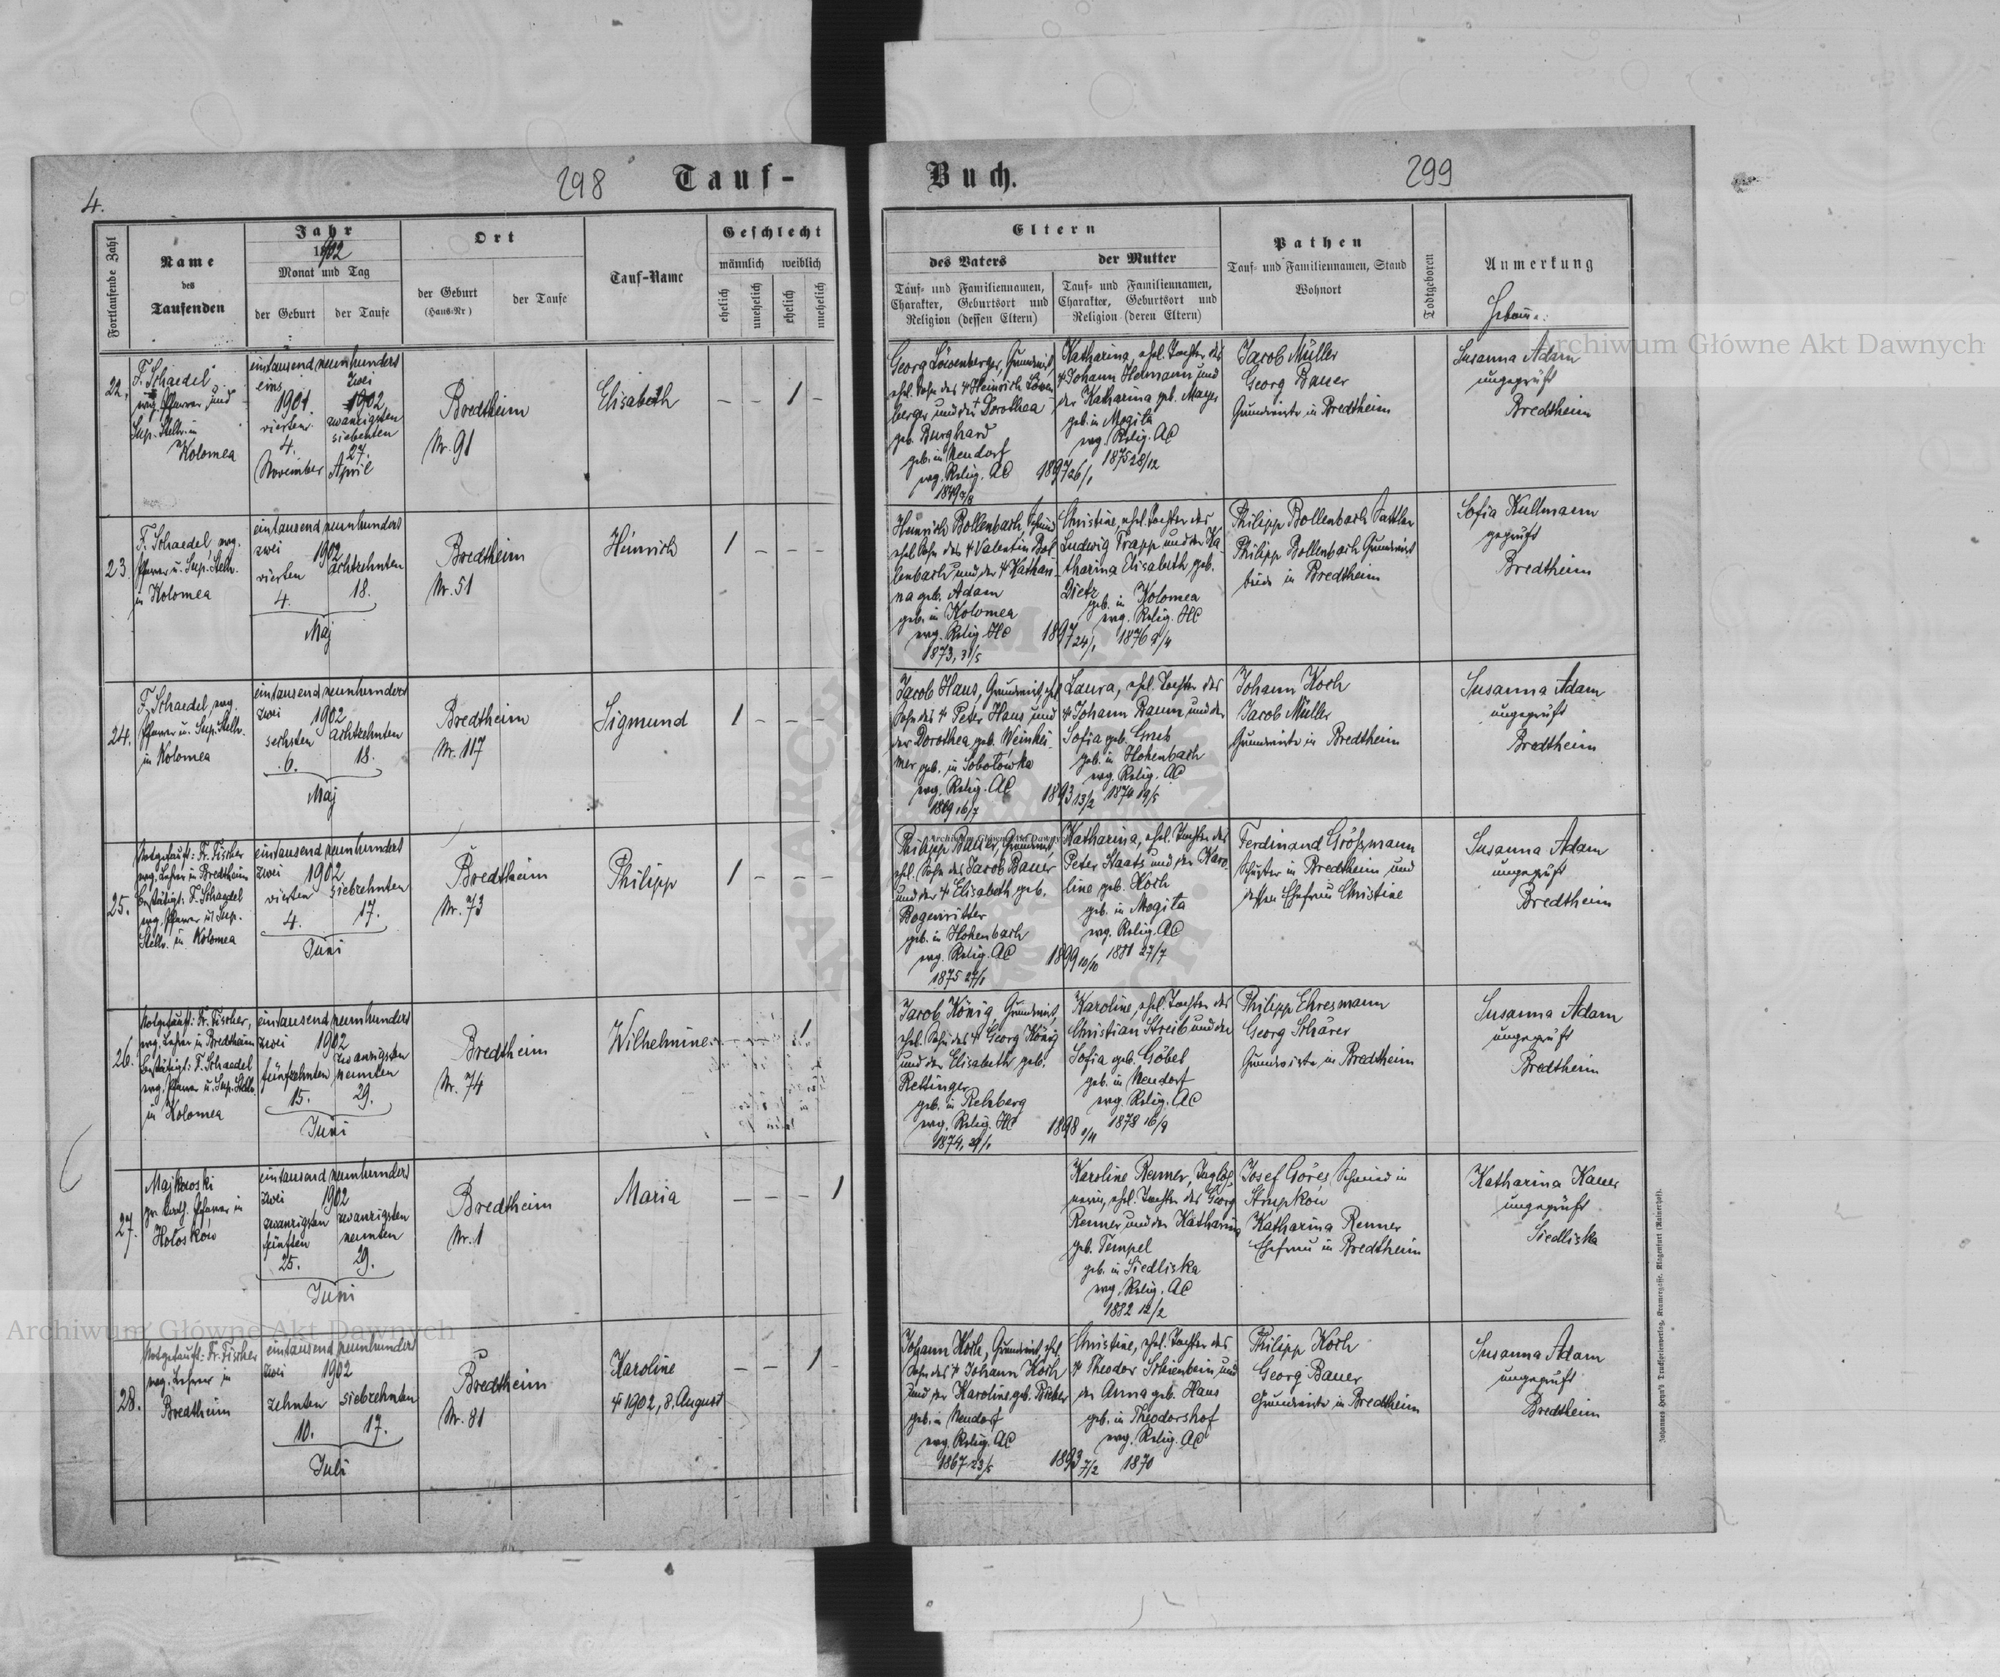 4.
298
Tauf-
Buch.
299
Fortlaufende Zahl
Name
des
Taufenden
Jahr
1902
Monat und Tag
der Geburt
der Taufe
Ort
der Geburt
(Haus-Nr)
der Taufe
Tauf-Name
Geschlecht
männlich
weiblich
ehelich
unehelich
ehelich
unehelich
Eltern
des Vaters
Tauf- und Familiennamen,
Charakter, Geburtsort und
Religion (dessen Eltern)
der Mutter
Tauf- und Familiennamen,
Charakter, Geburtsort und
Religion (deren Eltern)
Pathen
Tauf- und Familiennamen, Stand
Wohnort
Todtgeboren
Anmerkung
22.
F. Schaedel
evg. Pfarrer und
Sup. Stellv. in
Kolomea
eintausend neunhundert
eins
1901
vierten
4.
November
zwei
1902
zwanzigsten
siebenten
27.
April
Bredtheim
Nr. 91
Elisabeth
– – 1 –
Georg Löwenberger, Grundwirt,
ehel. Sohn des † Heinrich Löwen-
berger und der † Dorothea
geb. Burghard
geb. in Neudorf
evg. Relig. AC
Katharina, ehel. Tochter des
† Johann Hermann und
der Katharina geb. Mayer
geb. in Mogila
evg. Relig. AC
1875 28/12
1897 26/1
Jacob Müller
Georg Bauer
Grundwirte in Bredtheim
Susanna Adam
ungeprüft
Bredtheim
23.
F. Schaedel, evg.
Pfarrer u. Sup. Stellv.
in Kolomea
eintausend neunhundert
zwei 1902
vierten achtzehnten
4. 18.
Maj
Bredtheim
Nr. 51
Heinrich
1 – – –
Heinrich Bollenbach, Schmied
ehel. Sohn des † Valentin Bol-
lenbach und der † Kathari-
na geb. Adam
geb. in Kolomea
evg. Relig. HC
1873, 31/5
Christine, ehel. Tochter des
Ludwig Trapp und der Ka-
tharina Elisabeth, geb.
Dietz
geb. in Kolomea
evg. Relig. HC
1897 24/1 1876 9/4
Philipp Bollenbach Sattler
Philipp Bollenbach Grundwirt
beide in Bredtheim
Sofia Kullmann
geprüft
Bredtheim
24.
F. Schaedel evg.
Pfarrer u. Sup. Stellv.
in Kolomea
eintausend neunhundert
zwei 1902
sechsten achtzehnten
6. 18.
Maj
Bredtheim
Nr. 117
Sigmund
1 – – –
Jacob Haus, Grundwirt, ehel.
Sohn des † Peter Haus und
der Dorothea, geb. Weinhei-
mer geb. in Sobotówka
evg. Relig. AC
1869 16/7
Laura, ehel. Tochter des
† Johann Baum und der
Sofia geb. Grub
geb. in Hohenbach
evg. Relig. AC
1893 13/2 1874 19/5
Johann Koch
Jacob Müller
Grundwirte in Bredtheim
Susanna Adam
ungeprüft
Bredtheim
25.
Notgetauft: Fr. Fischer
evg. Lehrer in Bredtheim
Bestätigt: F. Schaedel
evg. Pfarrer u. Sup.
Stellv. in Kolomea
eintausend neunhundert
zwei 1902
vierten siebzehnten
4. 17.
Juni
Bredtheim
Nr. 73
Philipp
1 – – –
Philipp Bauer, Grundwirt,
ehel. Sohn des Jacob Bauer
und der † Elisabeth geb.
Bogenritter
geb. in Hohenbach
evg. Relig. AC
1875 27/1
Katharina, ehel. Tochter des
Peter Staats und der Karo-
line geb. Koch
geb. in Mogila
evg. Relig. AC
1899 10/10 1881 27/7
Ferdinand Größmann
Schuster in Bredtheim und
dessen Ehefrau Christine
Susanna Adam
ungeprüft
Bredtheim
26.
Notgetauft: Fr. Fischer,
evg. Lehrer in Bredtheim
Bestätigt: F. Schaedel
evg. Pfarrer u. Sup. Stellv.
in Kolomea
eintausend neunhundert
zwei 1902
fünfzehnten
zwanzigsten
neunten
15. 29.
Juni
Bredtheim
Nr. 74
Wilhelmine
– – 1
Jacob König Grundwirt,
ehel. Sohn des † Georg König
und der Elisabeth geb.
Rettinger
geb. in Rehberg
evg. Relig. HC
Karoline, ehel. Tochter des
Christian Streib und der
Sofia geb. Göbel
geb. in Neudorf
evg. Relig. AC
1878 16/9
Philipp Ehresmann
Georg Schärer
Grundwirte in Bredtheim
Susanna Adam
ungeprüft
Bredtheim
27.
Majkowski
gr. kath. Pfarrer in
Hołosków
eintausend neunhundert
zwei 1902
zwanzigsten zwanzigsten
fünften neunten
25. 29.
Juni
Bredtheim
Nr. 1
Maria
– – – 1
Karoline Renner, Taglöh-
nerin, ehel. Tochter des Georg
Renner und der Katharina
geb. Tempel
geb. in Siedliska
evg. Relig. AC
1882 12/2
Josef Göres, Schmied in
Strupków
Katharina Renner
Ehefrau in Bredtheim
Katharina Kauer
ungeprüft
Siedliska
28.
Notgetauft: Fr. Fischer
evg. Lehrer in
Bredtheim
eintausend neunhundert
zwei 1902
zehnten siebzehnten
10. 17.
Juli
Bredtheim
Nr. 81
Karoline
† 1902, 8. August
– – 1 –
Johann Koch, Grundwirt, ehel.
Sohn des † Johann Koch
und der Karoline, geb. Bieber
geb. in Neudorf
evg. Relig. AC
1867 23/5
Christine, ehel. Tochter des
† Theodor Schienbein und
der Anna geb. Haus
geb. in Theodorshof
evg. Relig. AC
1893 7/2 1870
Philipp Koch
Georg Bauer
Grundwirte in Bredtheim
Susanna Adam
ungeprüft
Bredtheim
Archiwum Główne Akt Dawnych
Archiwum Główne Akt Dawnych